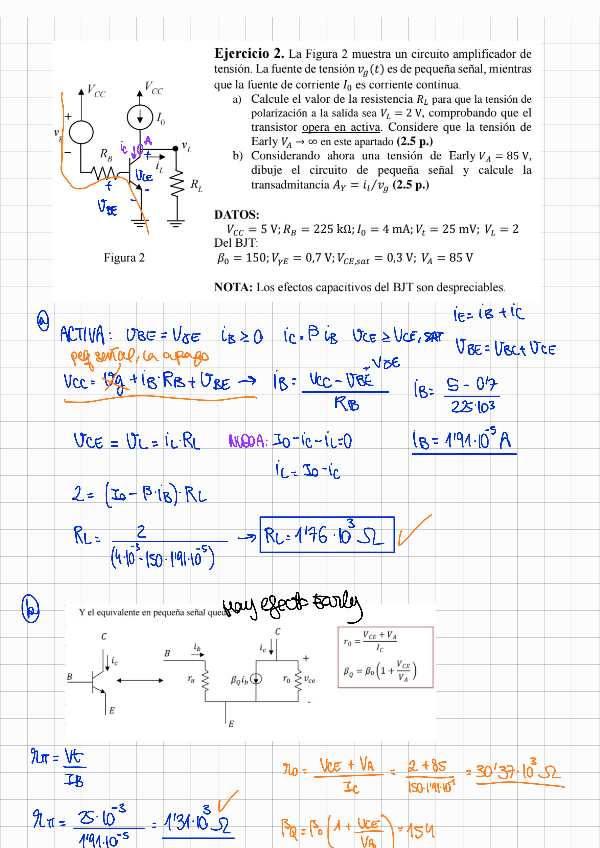 Ejercicio 2. La Figura 2 muestra un circuito amplificador de
tensión. La fuente de tensión v_g(t) es de pequeña señal, mientras
que la fuente de corriente I_0 es corriente continua.
a) Calcule el valor de la resistencia R_L para que la tensión de
polarización a la salida sea V_L = 2 V, comprobando que el
transistor opera en activa. Considere que la tensión de
Early V_A → ∞ en este apartado (2.5 p.)
b) Considerando ahora una tensión de Early V_A = 85 V,
dibuje el circuito de pequeña señal y calcule la
transadmitancia A_Y = i_l/v_g (2.5 p.)
DATOS:
V_CC = 5 V; R_B = 225 kΩ; I_0 = 4 mA; V_t = 25 mV; V_L = 2
Del BJT:
β_0 = 150; V_γE = 0,7 V; V_CE,sat = 0,3 V; V_A = 85 V
NOTA: Los efectos capacitivos del BJT son despreciables.
V_CC
V_CC
+
I_0
v_g
-
iC
A
v_L
R_B
i_L
+
UCE
R_L
+
-
-
UBE
Figura 2
a)
ACTIVA: UBE = VγE iB ≥ 0 iC = β iB VCE ≥ VCE, SAT
iE = iB + iC
UBE = UBC + UCE
peq señal, la apago
VCC = vg + iB·RB + UBE → iB = (VCC - UBE) / RB
VγE
iB = (5 - 0'7) / (225·10³)
iB = 1'91·10⁻⁵ A
UCE = UL = iL·RL
NUDO A: I0 - iC - iL = 0
iL = I0 - iC
2 = (I0 - β·iB)·RL
RL = 2 / (4·10⁻³ - 150·1'91·10⁻⁵) → RL = 1'76·10³ Ω
b)
Y el equivalente en pequeña señal
hay efecto Early
C
i_c
B
E
B
i_b
r_π
β_Q i_b
i_c
C
r_0
+
v_ce
-
E
r_0 = (V_CE + V_A) / I_C
β_Q = β_0 (1 + V_CE/V_A)
rπ = Vt / IB
r0 = (VCE + VA) / IC = (2 + 85) / (150·1'91·10⁻⁵) = 30'37·10³ Ω
rπ = 25·10⁻³ / 1'91·10⁻⁵ = 1'31·10³ Ω
βQ = β0 (1 + UCE/VA) = 154